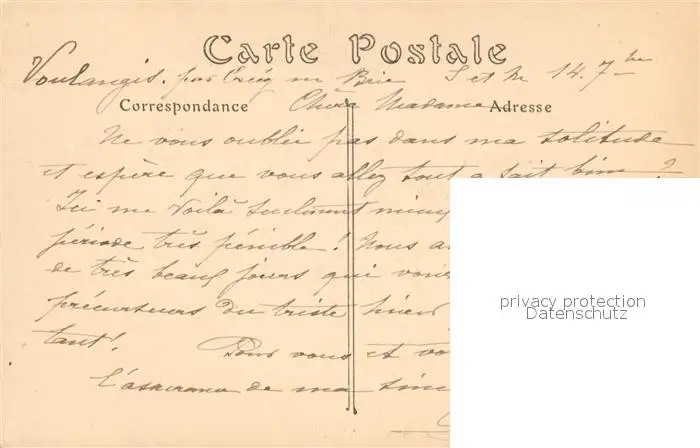 Carte Postale
Voulangis. par Crécy en Brie S et M 14. 7bre
Correspondance Chère Madame Adresse
Ne vous oublie pas dans ma solitude
et espère que vous allez tout a fait bien?
Ici me voilà seulement mieux
période très pénible! Nous a
de très beaux jours qui
précurseurs du triste hiver
tant! Pour vous et vo
l'assurance de ma sinc
privacy protection
Datenschutz